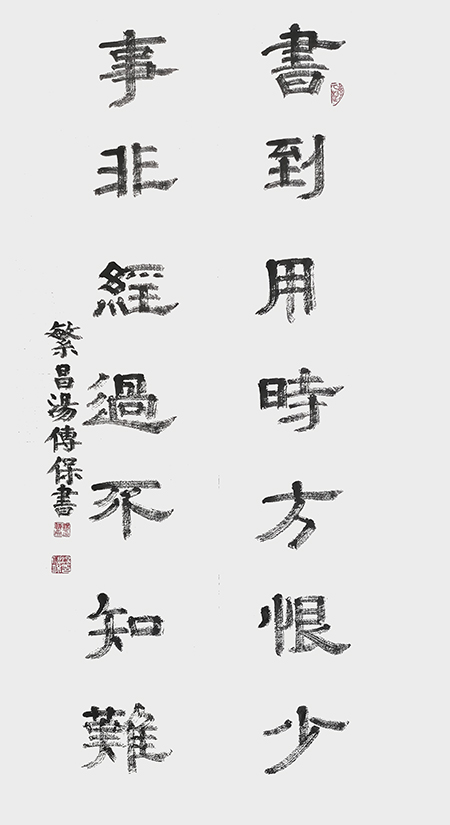 書到用時方恨少
事非經過不知難
繁昌湯傳保書